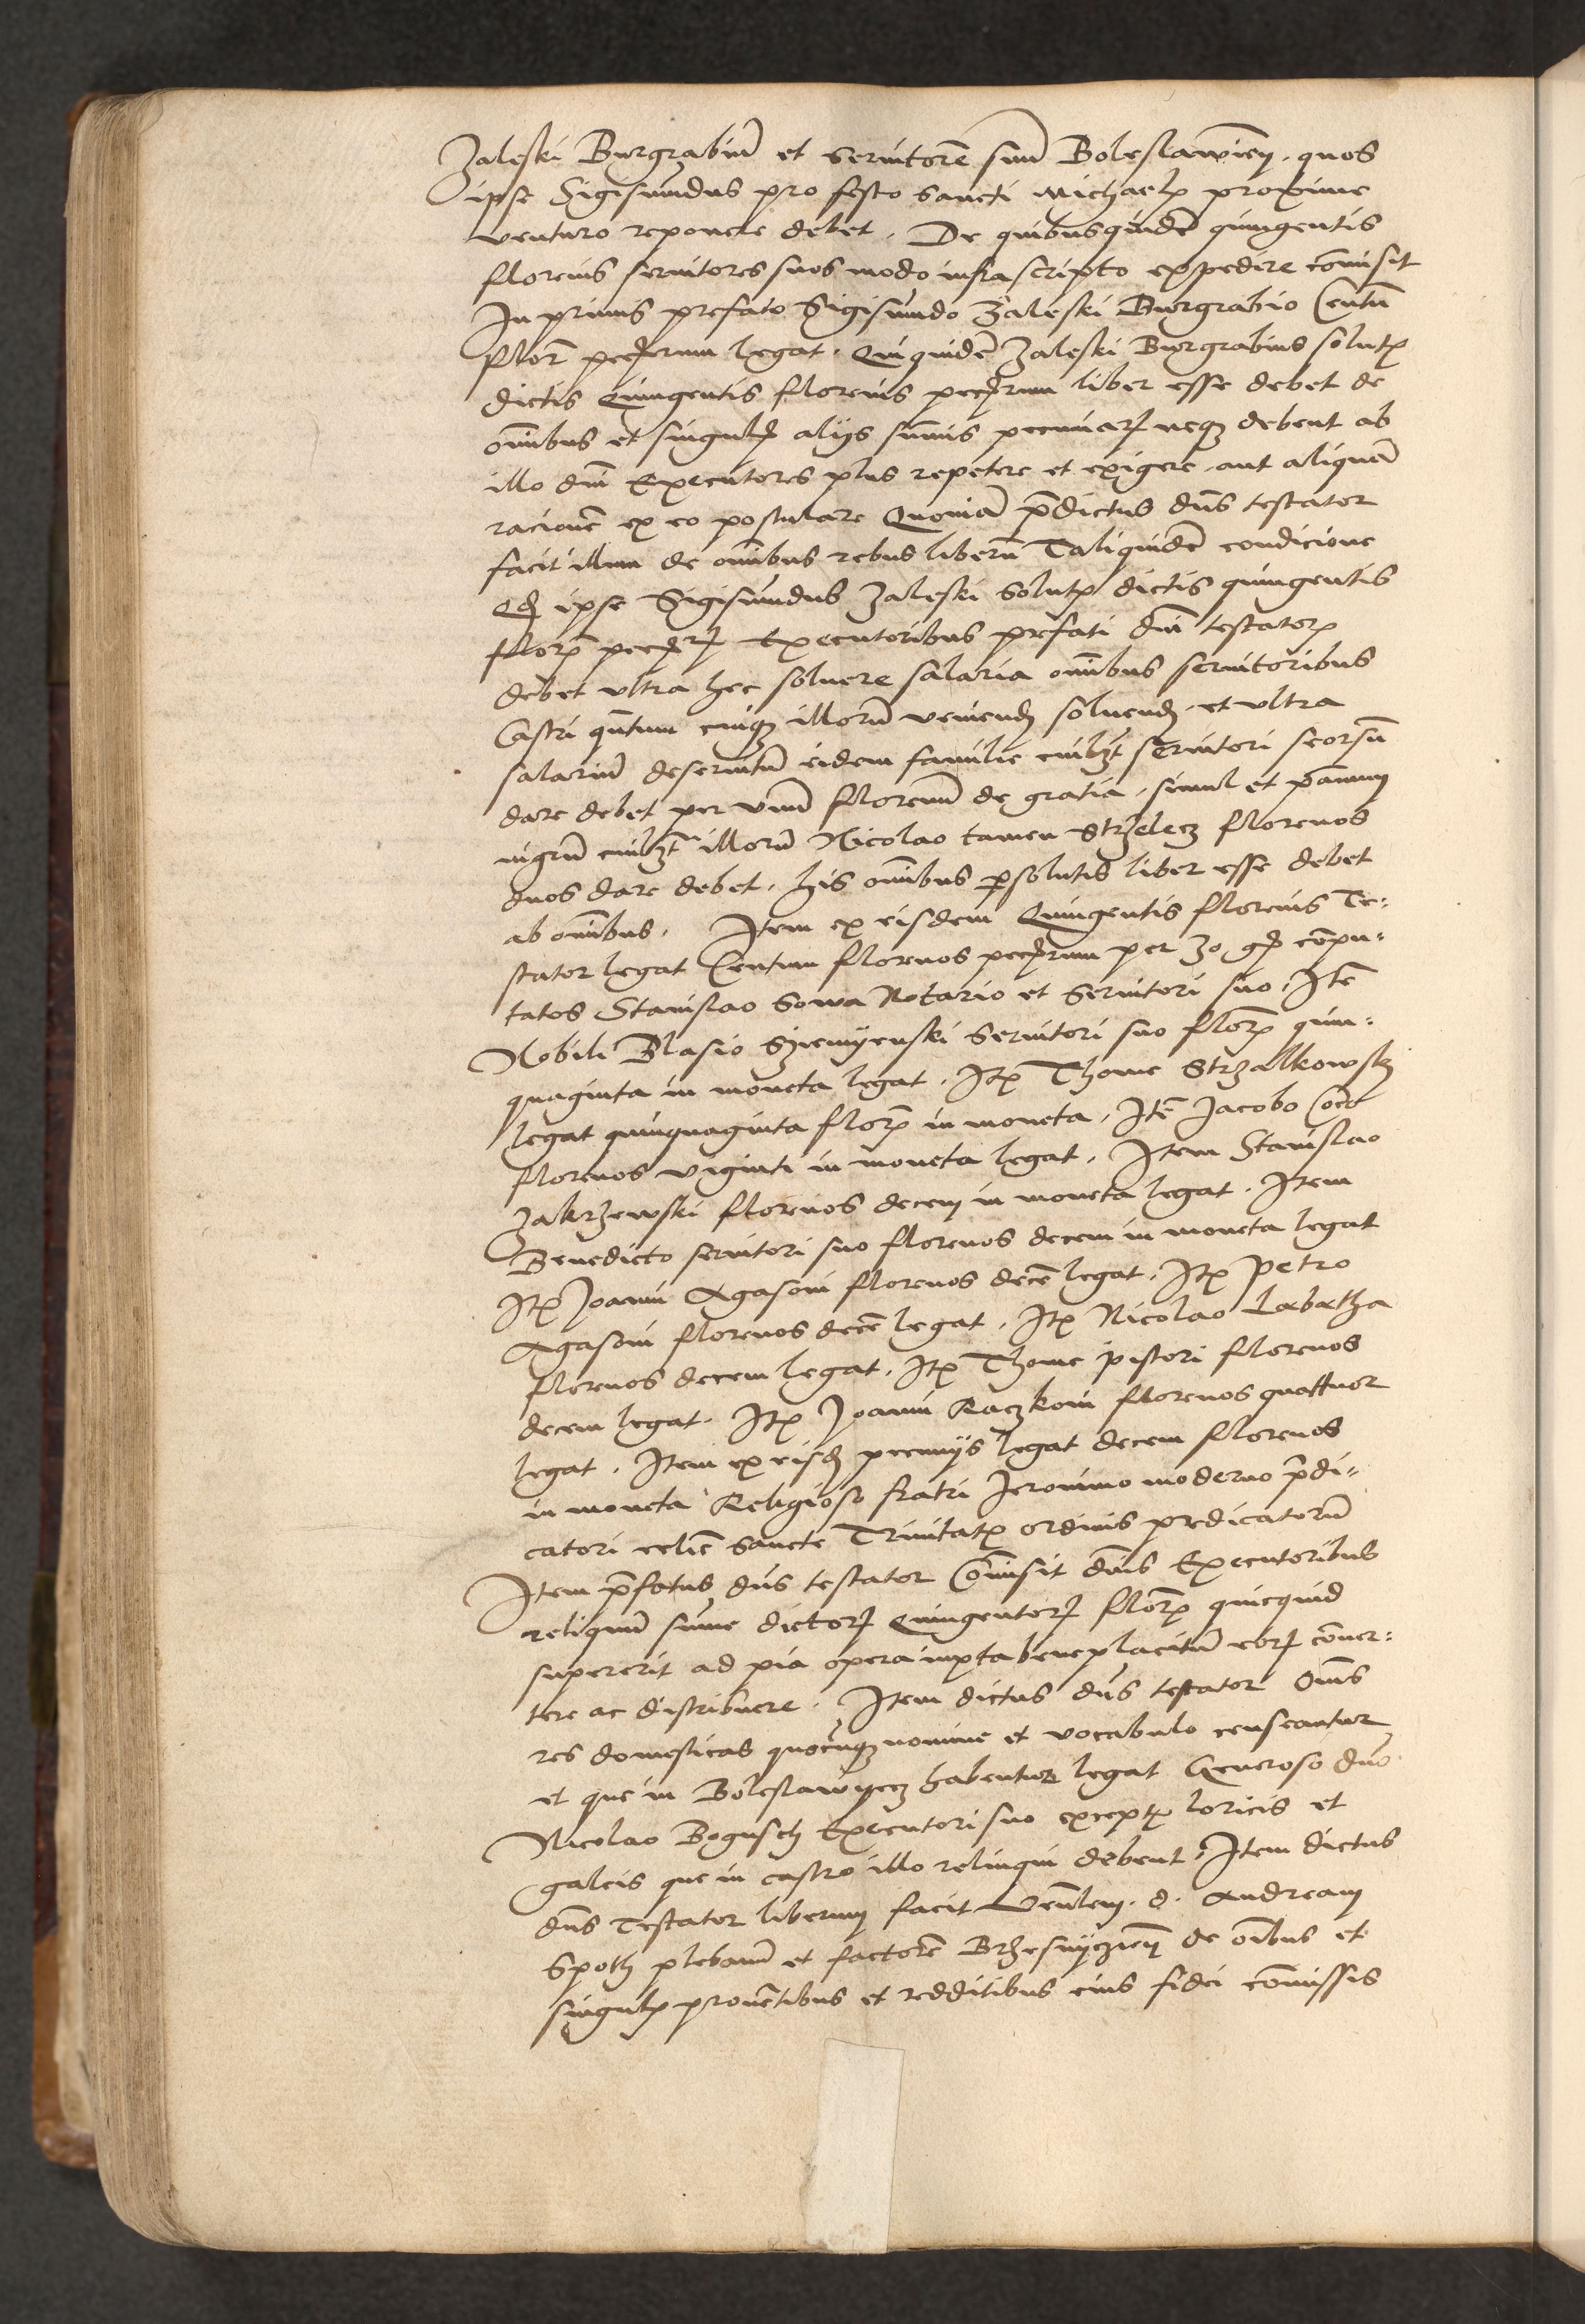 Zaleski Burgrabiu̅ et seruitore̅ suu̅ Boleslawien̅, quos
ipse Sigismundus pro festo Sancti Michaelꝭ proxime
venturo reponere debet. De quibusquide̅ quingentis
florenis seruitores suos modo infrascripto expedire com̅isit
In primis prefato Sigismundo Zaleski Burgrabio Centu̅
flor̅ pecu̅iarum legat. Quiquide̅ Zaleski Burgrabius solutꝭ
dictis Quingentis florenis pecu̅iarum liber esse debet de
om̅ibus et singulꝭ alijs sum̅is pecuniarꝝ neqꝫ debent ab
illo dn̅i Executores plus repetere et exigere, aut aliqua̅
racione̅ ex eo postulare Quonia̅ p̅dictus dn̅s testator
facit illum de om̅ibus rebus liberu̅ Taliquide̅ condicione
Qꝺ ipse Sigismundus Zaleski Solutꝭ dictis quingentis
florꝭ pecu̅iarꝝ Executoribus prefati dn̅i testatorꝭ
debet vltra hec soluere salaria om̅ibus seruitoribus
Castri qn̅tum cuiqꝫ illoru̅ veniendꝭ soluendꝭ, et vltra
salariu̅ deseruitu̅ eidem familie cuilꝫt seruitori seorsu̅
dare debet per vnu̅ florenu̅ de gratia, simul et pannum
nigru̅ cuilꝫt illoru̅ Nicolao tamen Strzelecz florenos
duos dare debet, his om̅ibus ꝑsolutis liber esse debet
ab om̅ibus. Item ex eisdem Quingentis florenis Te-
stator legat Centum florenos pecu̅iarum per 30 gꝭ compu-
tatos Stanislao Sowa Notario et Seruitori suo, Ite̅
Nobili Blasio Sziemyenski Seruitori suo florꝭ quin-
quaginta in moneta legat. Itꝭ Thome Strzalkowsky
legat quinquaginta florꝭ in moneta, Ite̅ Jacobo Coco
florenos viginti in moneta legat. Item Stanislao
Zakrzewski florenos decem in moneta legat. Item
Benedicto seruitori suo florenos decem in moneta legat
Itꝭ Joanni Agasoni florenos dece̅ legat. Itꝭ Petro
Agasoni florenos dece̅ legat. Itꝭ Nicolao Labatha
florenos decem legat. Itꝭ Thome pistori florenos
decem legat. Itꝭ Joanni Raczkoni florenos quattuor
legat. Item ex eisdꝭ pecunijs legat decem florenos
in moneta Religioso fratri Jeronimo moderno p̅di-
catori eccl̅ie Sancte Trinitatꝭ ordinis predicatoru̅
Item p̅fatus dn̅s testator Com̅isit dn̅is Executoribus
reliquu̅ sum̅e dictorꝝ Quingentorꝝ florꝭ quicquid
supererit ad pia opera iuxta beneplacitu̅ eorꝝ conuer-
tere ac distribuere. Item dictus dn̅s testator Om̅s
res domesticas quocu̅qꝫ nomine et vocabulo censeantur
et que in Boleslawyecz habentur legat Generoso dn̅o
Nicolao Bogusch Executori suo exceptꝭ loricis et
galeis que in castro illo relinqui debent. Item dictus
dn̅s Testator liberum facit Ven̅lem. d. Andream
Spoth plebanu̅ et factore̅ Brzesnyczien̅ de om̅ibus et
singulꝭ prouentibus et redditibus eius fidei com̅issis